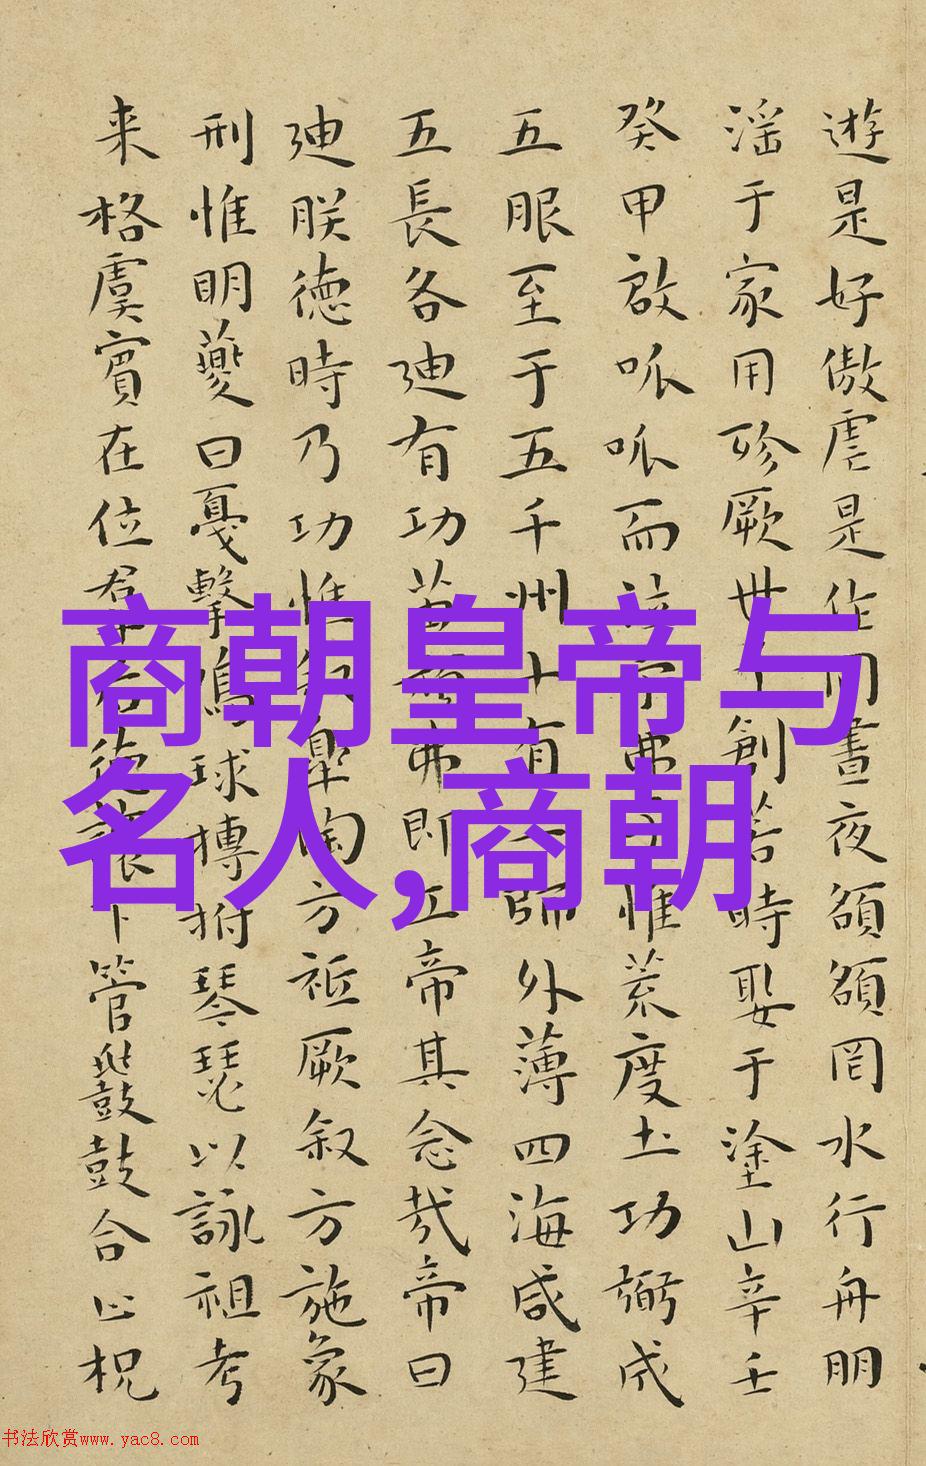 遊是好傲虐是作罔晝夜頟頟罔水行舟朋
滛于家用殄厥世予創若時娶于塗山辛壬
癸甲啟呱呱而泣予弗子惟荒度土功弼成
五服至于五千州十有二師外薄四海咸建
五長各廸有功苗頑弗即工帝其念哉帝曰
廸朕德時乃功惟叙皐陶方祗厥叙方施象
刑惟明夔曰戛擊鳴球搏拊琴瑟以詠祖考
来格虞賓在位羣后德讓下管鼗鼓合止柷
商朝皇帝与
名人,商朝
书法欣赏www.yac8.com